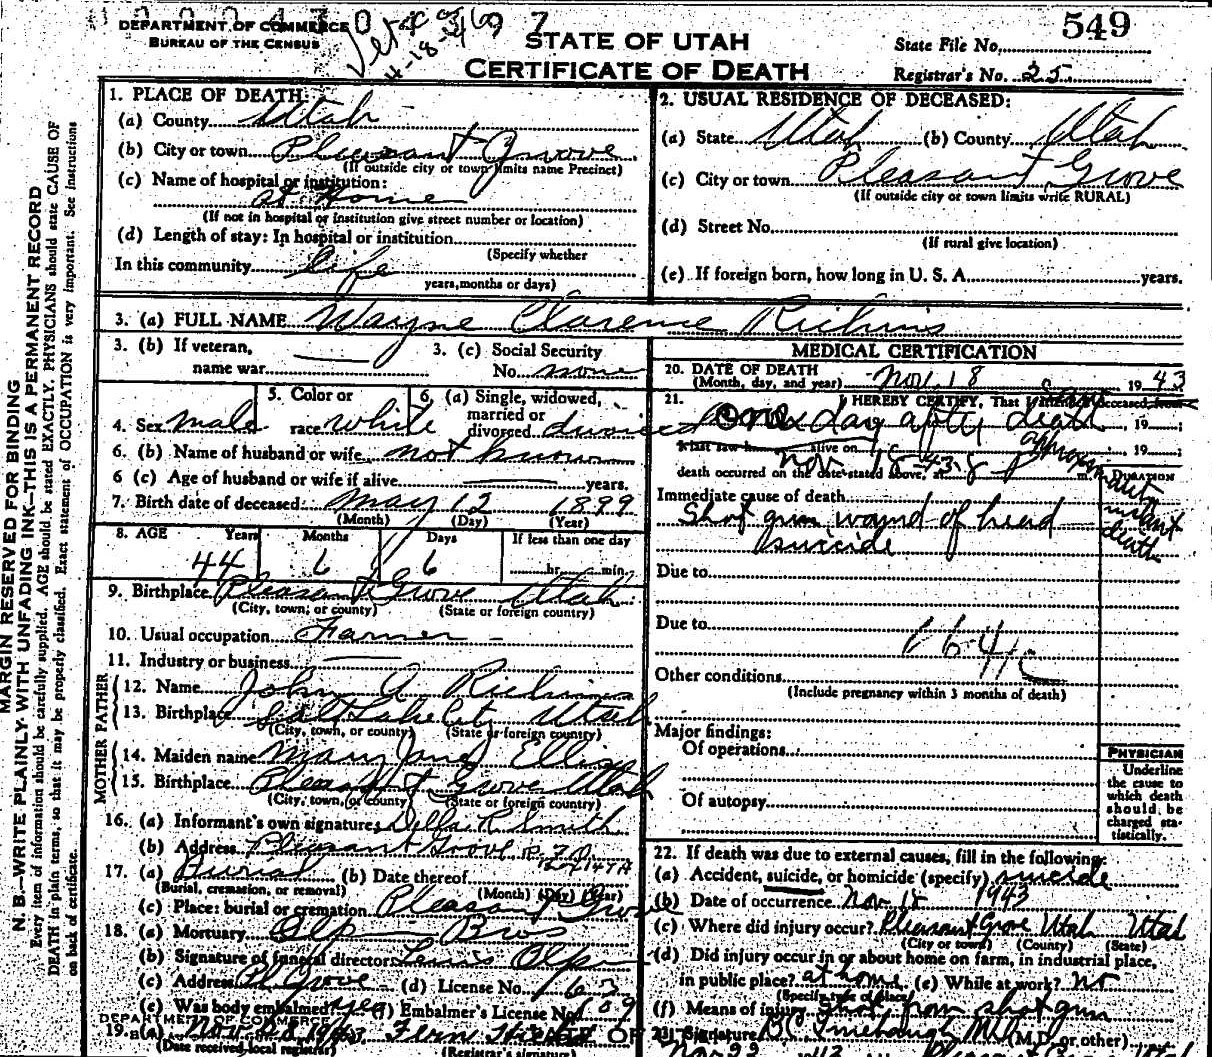 DEPARTMENT OF COMMERCE
BUREAU OF THE CENSUS
STATE OF UTAH
CERTIFICATE OF DEATH
549
State File No.
Registrar's No. 25
MARGIN RESERVED FOR BINDING
N. B.—WRITE PLAINLY WITH UNFADING INK—THIS IS A PERMANENT RECORD
Every item of information should be carefully supplied. AGE should be stated EXACTLY. PHYSICIANS should state CAUSE OF
DEATH in plain terms, so that it may be properly classified. Exact statement of OCCUPATION is very important. See instructions
on back of certificate.
1. PLACE OF DEATH:
(a) County Utah
(b) City or town Pleasant Grove
(If outside city or town limits name Precinct)
(c) Name of hospital or institution:
at Home
(If not in hospital or institution give street number or location)
(d) Length of stay: In hospital or institution
(Specify whether
In this community life
years, months or days)
2. USUAL RESIDENCE OF DECEASED:
(a) State Utah (b) County Utah
(c) City or town Pleasant Grove
(If outside city or town limits write RURAL)
(d) Street No.
(If rural give location)
(e) If foreign born, how long in U. S. A. years.
3. (a) FULL NAME Wayne Clarence Richins
3. (b) If veteran,
name war
3. (c) Social Security
No. none
4. Sex male
5. Color or
race white
6. (a) Single, widowed,
married or
divorced divorced
6. (b) Name of husband or wife not known
6 (c) Age of husband or wife if alive years.
7. Birth date of deceased: May 12 1899
(Month) (Day) (Year)
8. AGE Years Months Days If less than one day
44 6 6 hr. min.
9. Birthplace Pleasant Grove Utah
(City, town, or county) (State or foreign country)
10. Usual occupation Farmer
11. Industry or business
FATHER
12. Name John A Richins
13. Birthplace Salt Lake City Utah
(City, town, or county) (State or foreign country)
MOTHER
14. Maiden name Mary Jane Ellis
15. Birthplace Pleasant Grove Utah
(City, town, or county) (State or foreign country)
16. (a) Informant's own signature Della R. Smith
(b) Address Pleasant Grove
17. (a) Burial (b) Date thereof
(Burial, cremation, or removal) (Month) (Day) (Year)
(c) Place: burial or cremation Pleasant Grove
18. (a) Mortuary Olpin Bros
(b) Signature of funeral director Lewis Olpin
(c) Address Pl. Grove (d) License No. 163
(e) Was body embalmed? yes (f) Embalmer's License No.
19. (a) Nov.
(Date received local registrar) (Registrar's signature)
MEDICAL CERTIFICATION
20. DATE OF DEATH
(Month, day, and year) Nov. 18 1943
21. I HEREBY CERTIFY, That I attended deceased from
one day after death, 19
I last saw h alive on , 19
death occurred on the date stated above, at m.
Nov 18-43-8 P approximate
DURATION
Immediate cause of death
Shot gun wound of head
suicide
instant
death
Due to
Due to
164c
Other conditions
(Include pregnancy within 3 months of death)
Major findings:
Of operations
Of autopsy
PHYSICIAN
Underline
the cause to
which death
should be
charged sta-
tistically.
22. If death was due to external causes, fill in the following:
(a) Accident, suicide, or homicide (specify) suicide
(b) Date of occurrence Nov 18 1943
(c) Where did injury occur? Pleasant Grove Utah Utah
(City or town) (County) (State)
(d) Did injury occur in or about home on farm, in industrial place,
in public place? at home (e) While at work? no
(Specify type of place)
(f) Means of injury Shot from shot gun
23. Signature (M.D. or other)